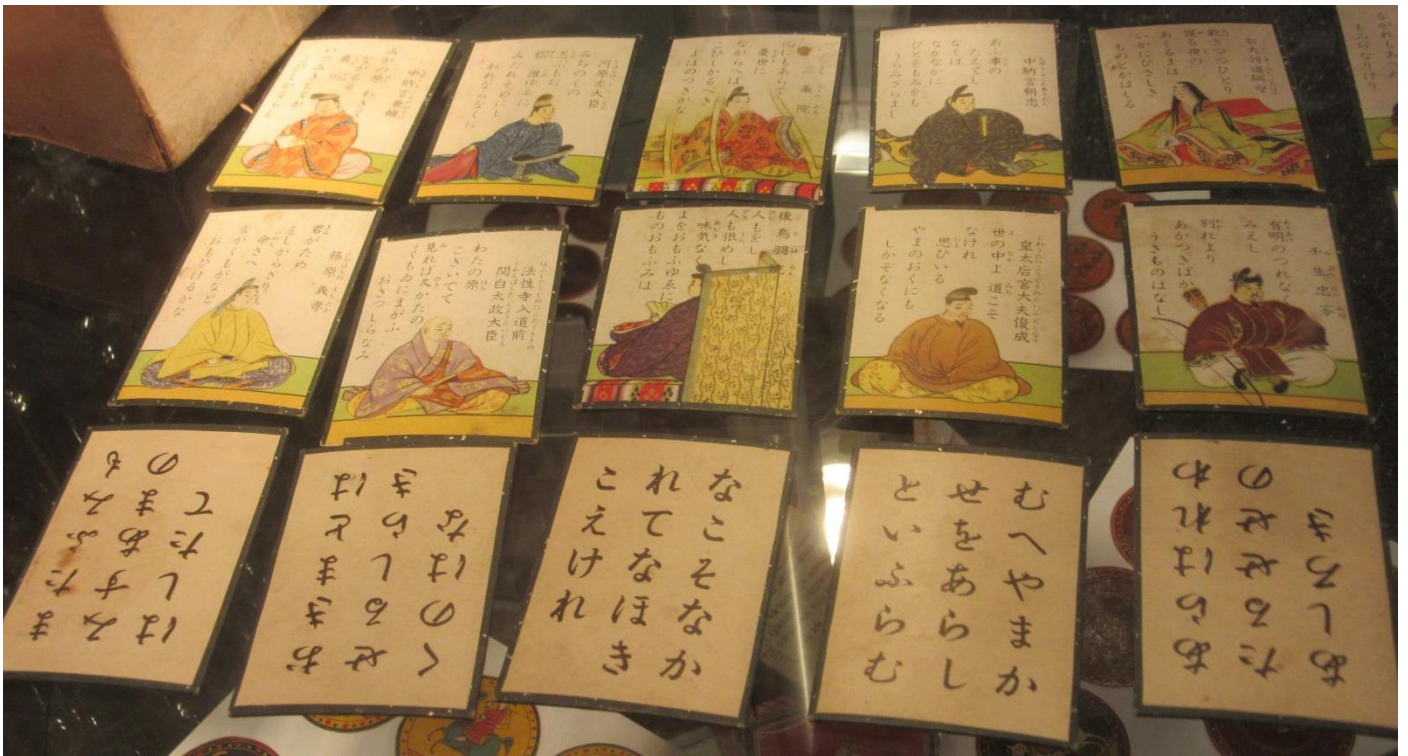 中納言兼輔
みかの原 わきて
ながるる
いつみきとてか
こひしかるらむ
河原左大臣
みちのくの
しのぶもぢ
摺 誰ゆゑに
みだれそめにし
われならなくに
三条院
心にもあらで
憂世に
ながらへば
こひしかるべき
よはのつきかな
中納言朝忠
あふ事の
たえてし
なくば
なかなかに
ひとをもみをも
うらみざらまし
右大将道綱母
歎きつつひとり
寝る夜の
あくるまは
いかにひさしき
ものとかはしる
ながれもあ
もみぢなりけり
藤原義孝
君がため
をしからざりし
命さへ
ながくもがなと
おもひけるかな
法性寺入道前
関白太政大臣
わたの原
こぎいでて
見れば久かたの
くもゐにまがふ
おきつしらなみ
後鳥羽院
人もをし
人も恨めし
味気なく
よをおもふゆゑに
ものおもふみは
皇太后宮大夫俊成
世の中よ 道こそ
なけれ
思ひいる
やまのおくにも
しかぞなくなる
壬生忠岑
有明のつれなく
みえし
別れより
あかつきばかり
うきものはなし
またふみも
みすあまの
はしたて
おきまとは
せるしらき
くのはな
なこそなか
れてなほき
こえけれ
むへやまか
せをあらし
といふらむ
あらはれわ
たるせせの
あしろき